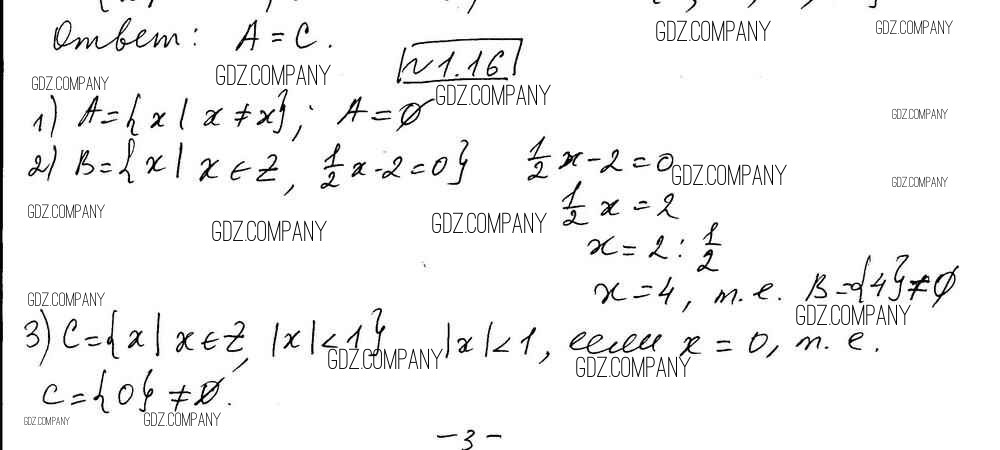 Ответ: A = C.
№1.16
1) A = {x | x ≠ x}; A = ∅
2) B = {x | x ∈ Z, 1/2 x - 2 = 0} 1/2 x - 2 = 0
1/2 x = 2
x = 2 : 1/2
x = 4, т.е. B = {4} ≠ ∅
3) C = {x | x ∈ Z, |x| < 1} |x| < 1, если x = 0, т.е.
C = {0} ≠ ∅.
- 3 -
GDZ.COMPANY GDZ.COMPANY
GDZ.COMPANY GDZ.COMPANY GDZ.COMPANY GDZ.COMPANY
GDZ.COMPANY GDZ.COMPANY
GDZ.COMPANY GDZ.COMPANY GDZ.COMPANY
GDZ.COMPANY GDZ.COMPANY
GDZ.COMPANY GDZ.COMPANY
GDZ.COMPANY GDZ.COMPANY